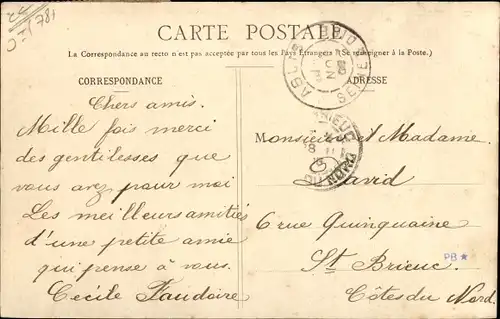 CARTE POSTALE
(La Correspondance au recto n'est pas acceptée par tous les Pays Etrangers) (Se renseigner à la Poste.)
CORRESPONDANCE
Chers amis.
Mille fois merci
des gentilesses que
vous avez pour moi
Les meilleurs amitiés
d'une petite amie
qui pense à vous.
Cecile Faudoire
ADRESSE
Monsieur et Madame
David
6 rue Quinquaine
St Brieuc
Côtes du Nord.
PB
ABLON
SEINE
BRIEUC
781